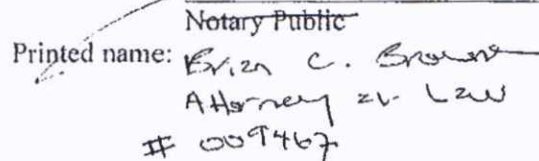 Notary Public
Printed name: Brian C. Browne
Attorney at Law
# 009467